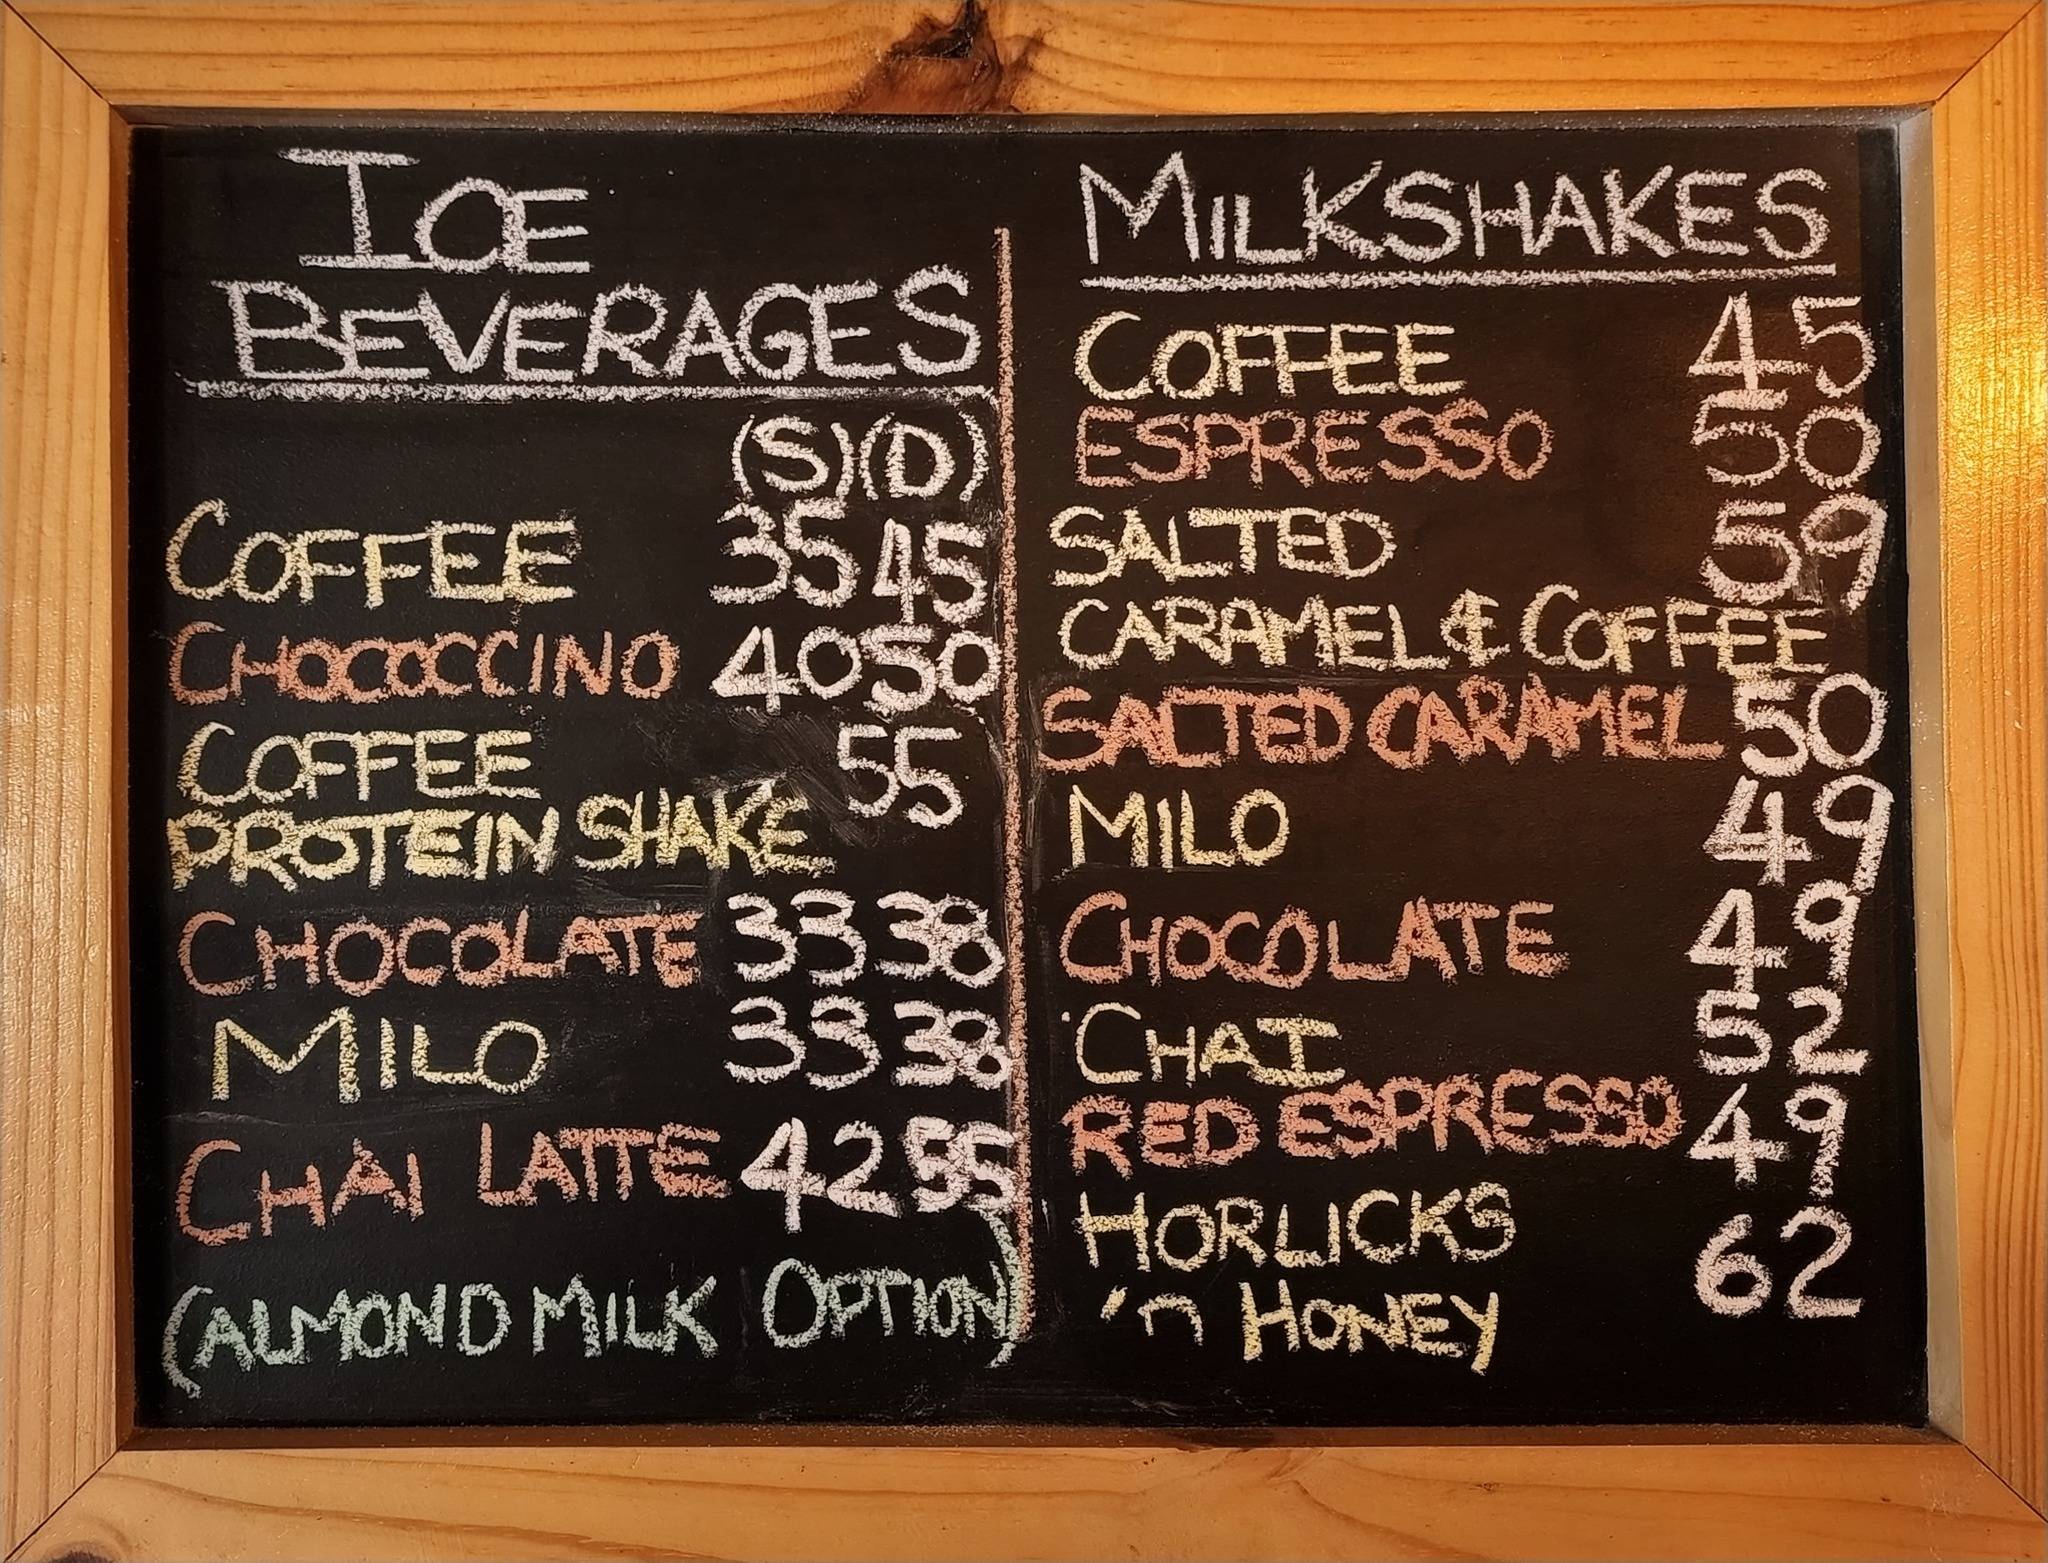 ICE
BEVERAGES
(S)(D)
COFFEE 35 45
CHOCOCCINO 40 50
COFFEE 55
PROTEIN SHAKE
CHOCOLATE 33 38
MILO 33 38
CHAI LATTE 42 55
(ALMOND MILK OPTION)
MILKSHAKES
COFFEE 45
ESPRESSO 50
SALTED 59
CARAMEL & COFFEE
SALTED CARAMEL 50
MILO 49
CHOCOLATE 49
CHAI 52
RED ESPRESSO 49
HORLICKS 62
'n HONEY